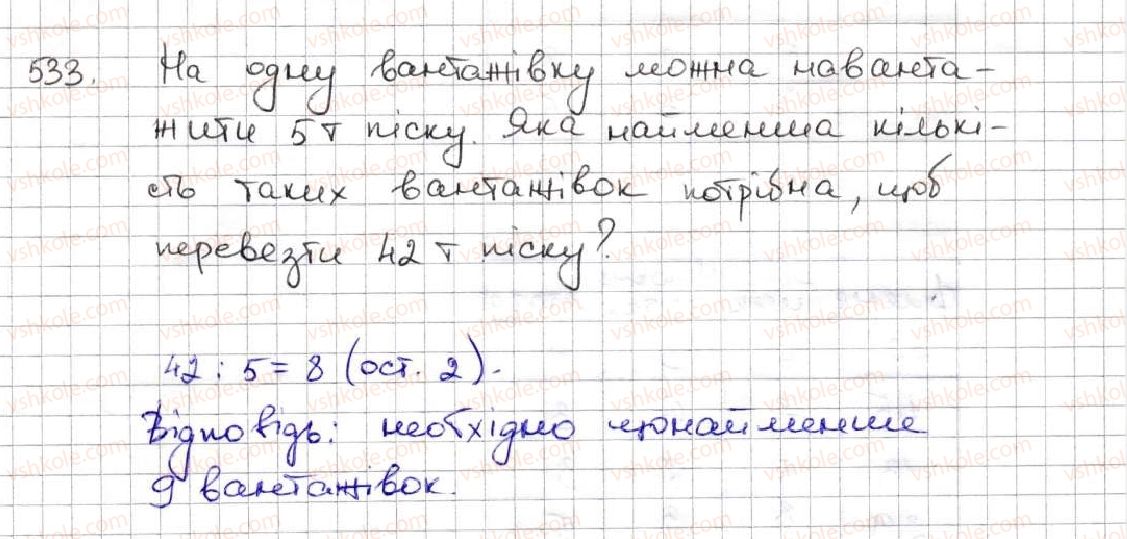 533. На одну вантажівку можна наванта-
жити 5 т піску. Яка найменша кількі-
сть таких вантажівок потрібна, щоб
перевезти 42 т піску?
42 : 5 = 8 (ост. 2).
Відповідь: необхідно щонайменше
9 вантажівок.